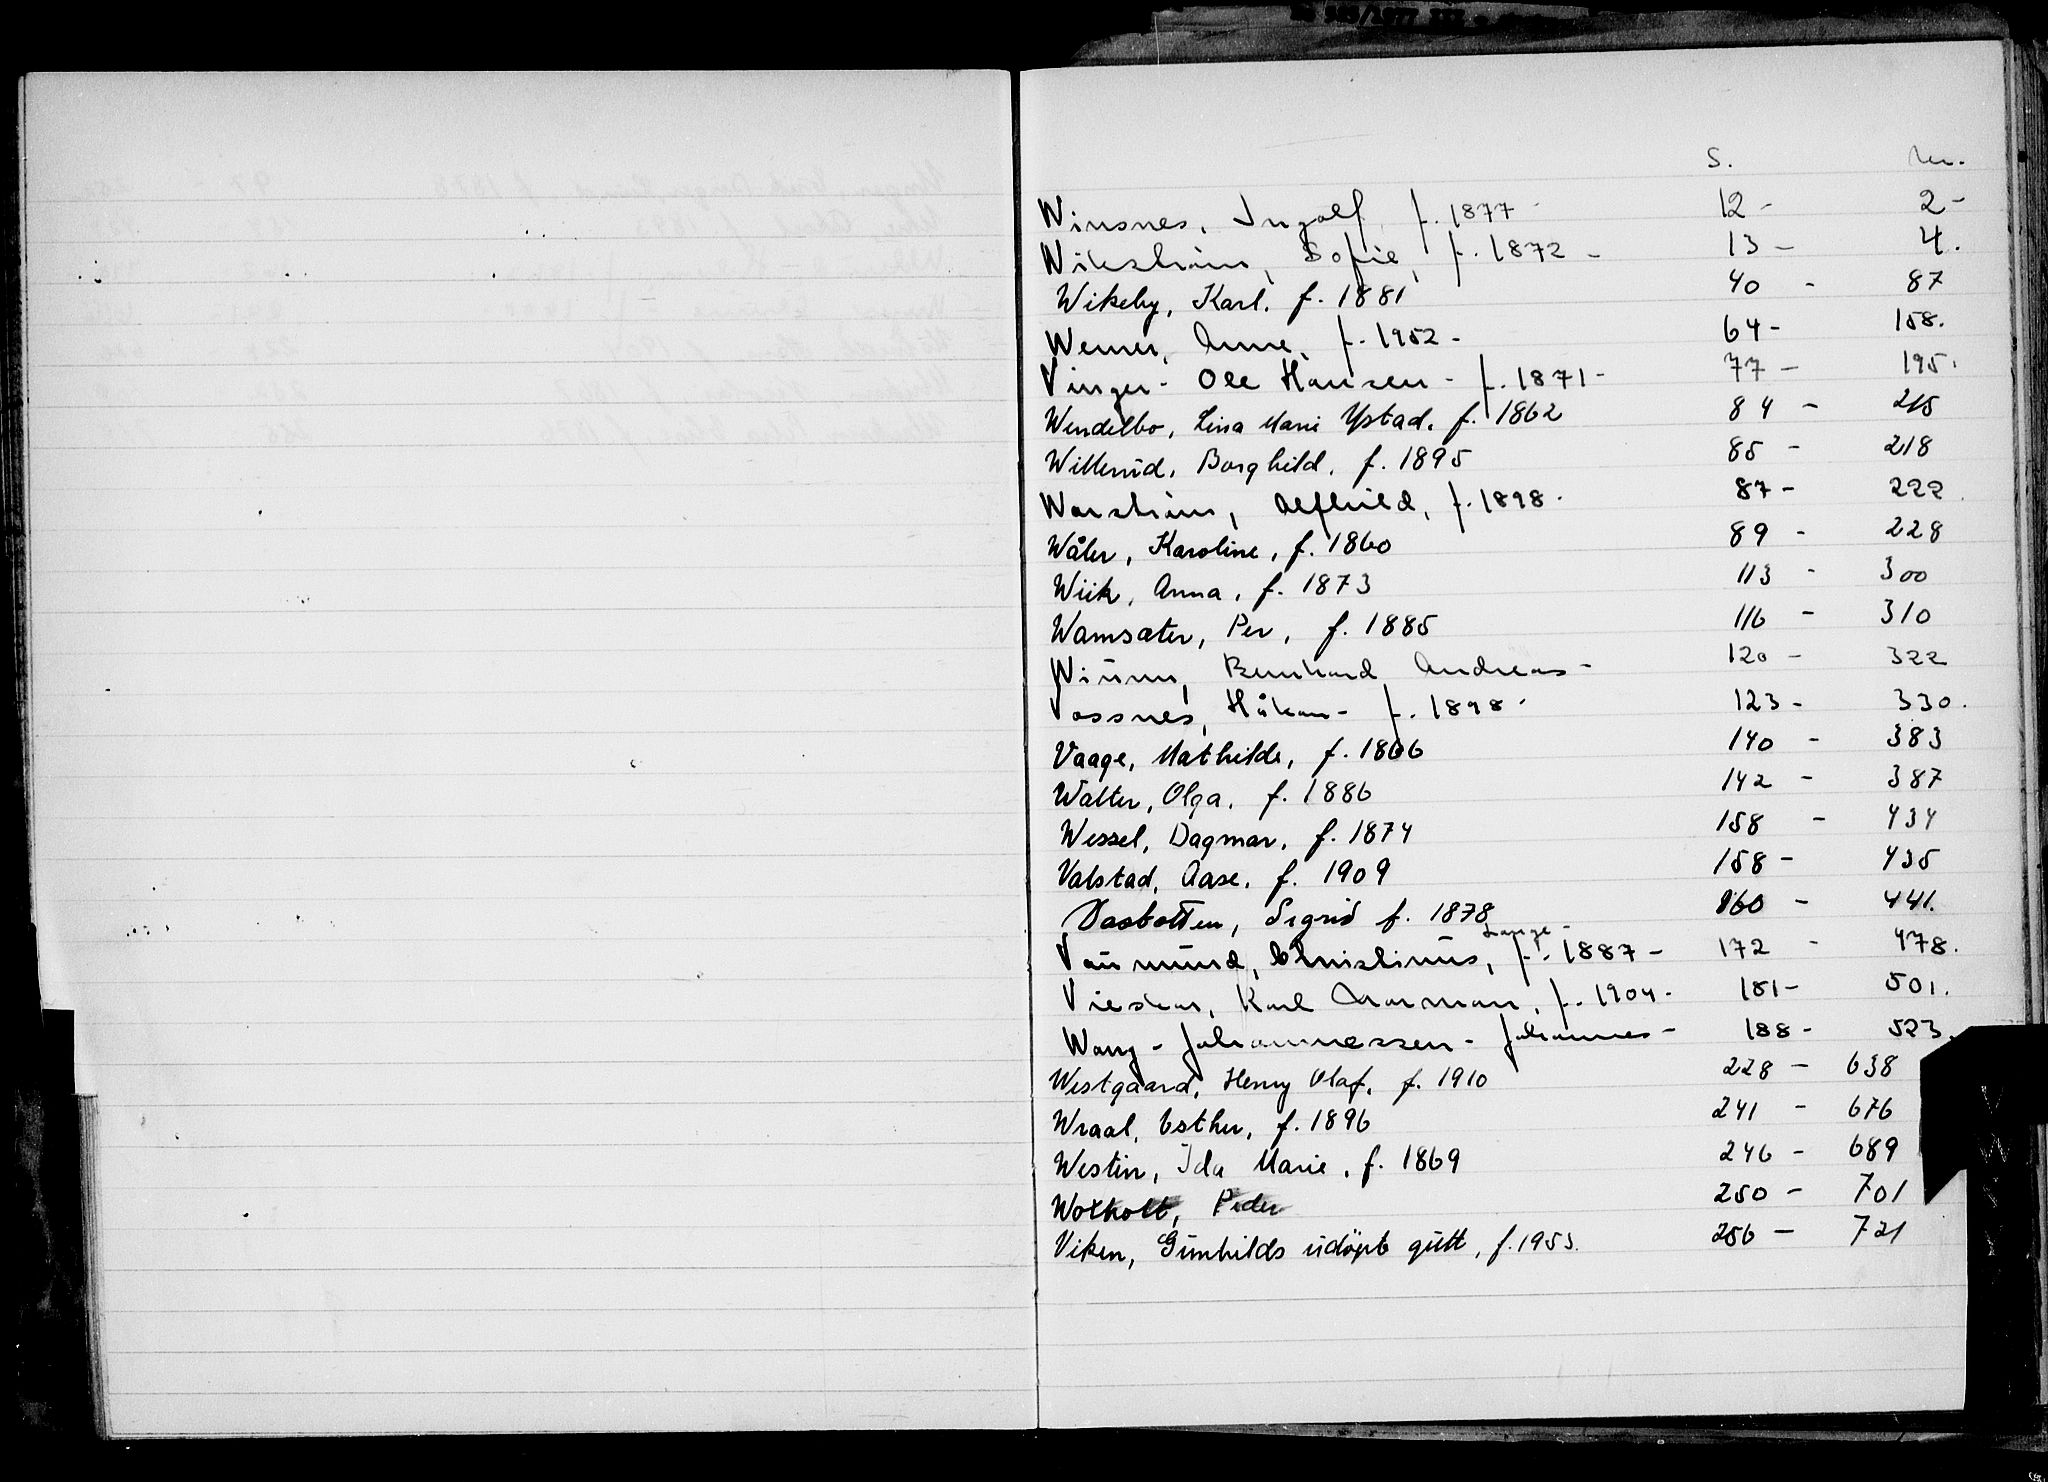 S. Nr.
Winsnes, Ingolf f. 1877 - 12 - 2 -
Wikstrøm, Sofie, f. 1872 - 13 - 4.
Wikeby, Karl. f. 1881 40 - 87
Werner, Anne, f. 1952 - 64 - 158.
Vinger - Ole Hansen - f. 1871 - 77 - 195.
Wendelbo, Lina Marie Ystad. f. 1862 84 - 215
Willerud, Borghild. f. 1895 85 - 218
Alfhild, f. 1898. 87 - 222.
Wåler, Karoline, f. 1860 89 - 228
Wiik, Anna, f. 1873 113 - 300
Wamsæter, Per, f. 1885 116 - 310
Bernhard Andreas - 120 - 322
Vossnes, Håkon - f. 1898 - 123 - 330.
Vaage, Mathilde, f. 1866 140 - 383
Walter, Olga. f. 1886 142 - 387
Wessel, Dagmar, f. 1874 158 - 434
Valstad, Aase. f. 1909 158 - 435
Vasbotten, Sigrid f. 1878 160 - 441.
Lange -
Christinus, f. 1887 - 172 - 478.
Karl Norman, f. 1904 - 181 - 501.
Wang - Johannessen - Johannes - 188 - 523.
Westgaard, Henry Olaf, f. 1910 228 - 638
Wraal, Esther, f. 1896 241 - 676
Westin, Ida Marie, f. 1869 246 - 689
Woxholt, Peder 250 - 701
Viken, Gunhilds udöpt gutt, f. 1953. 256 - 721